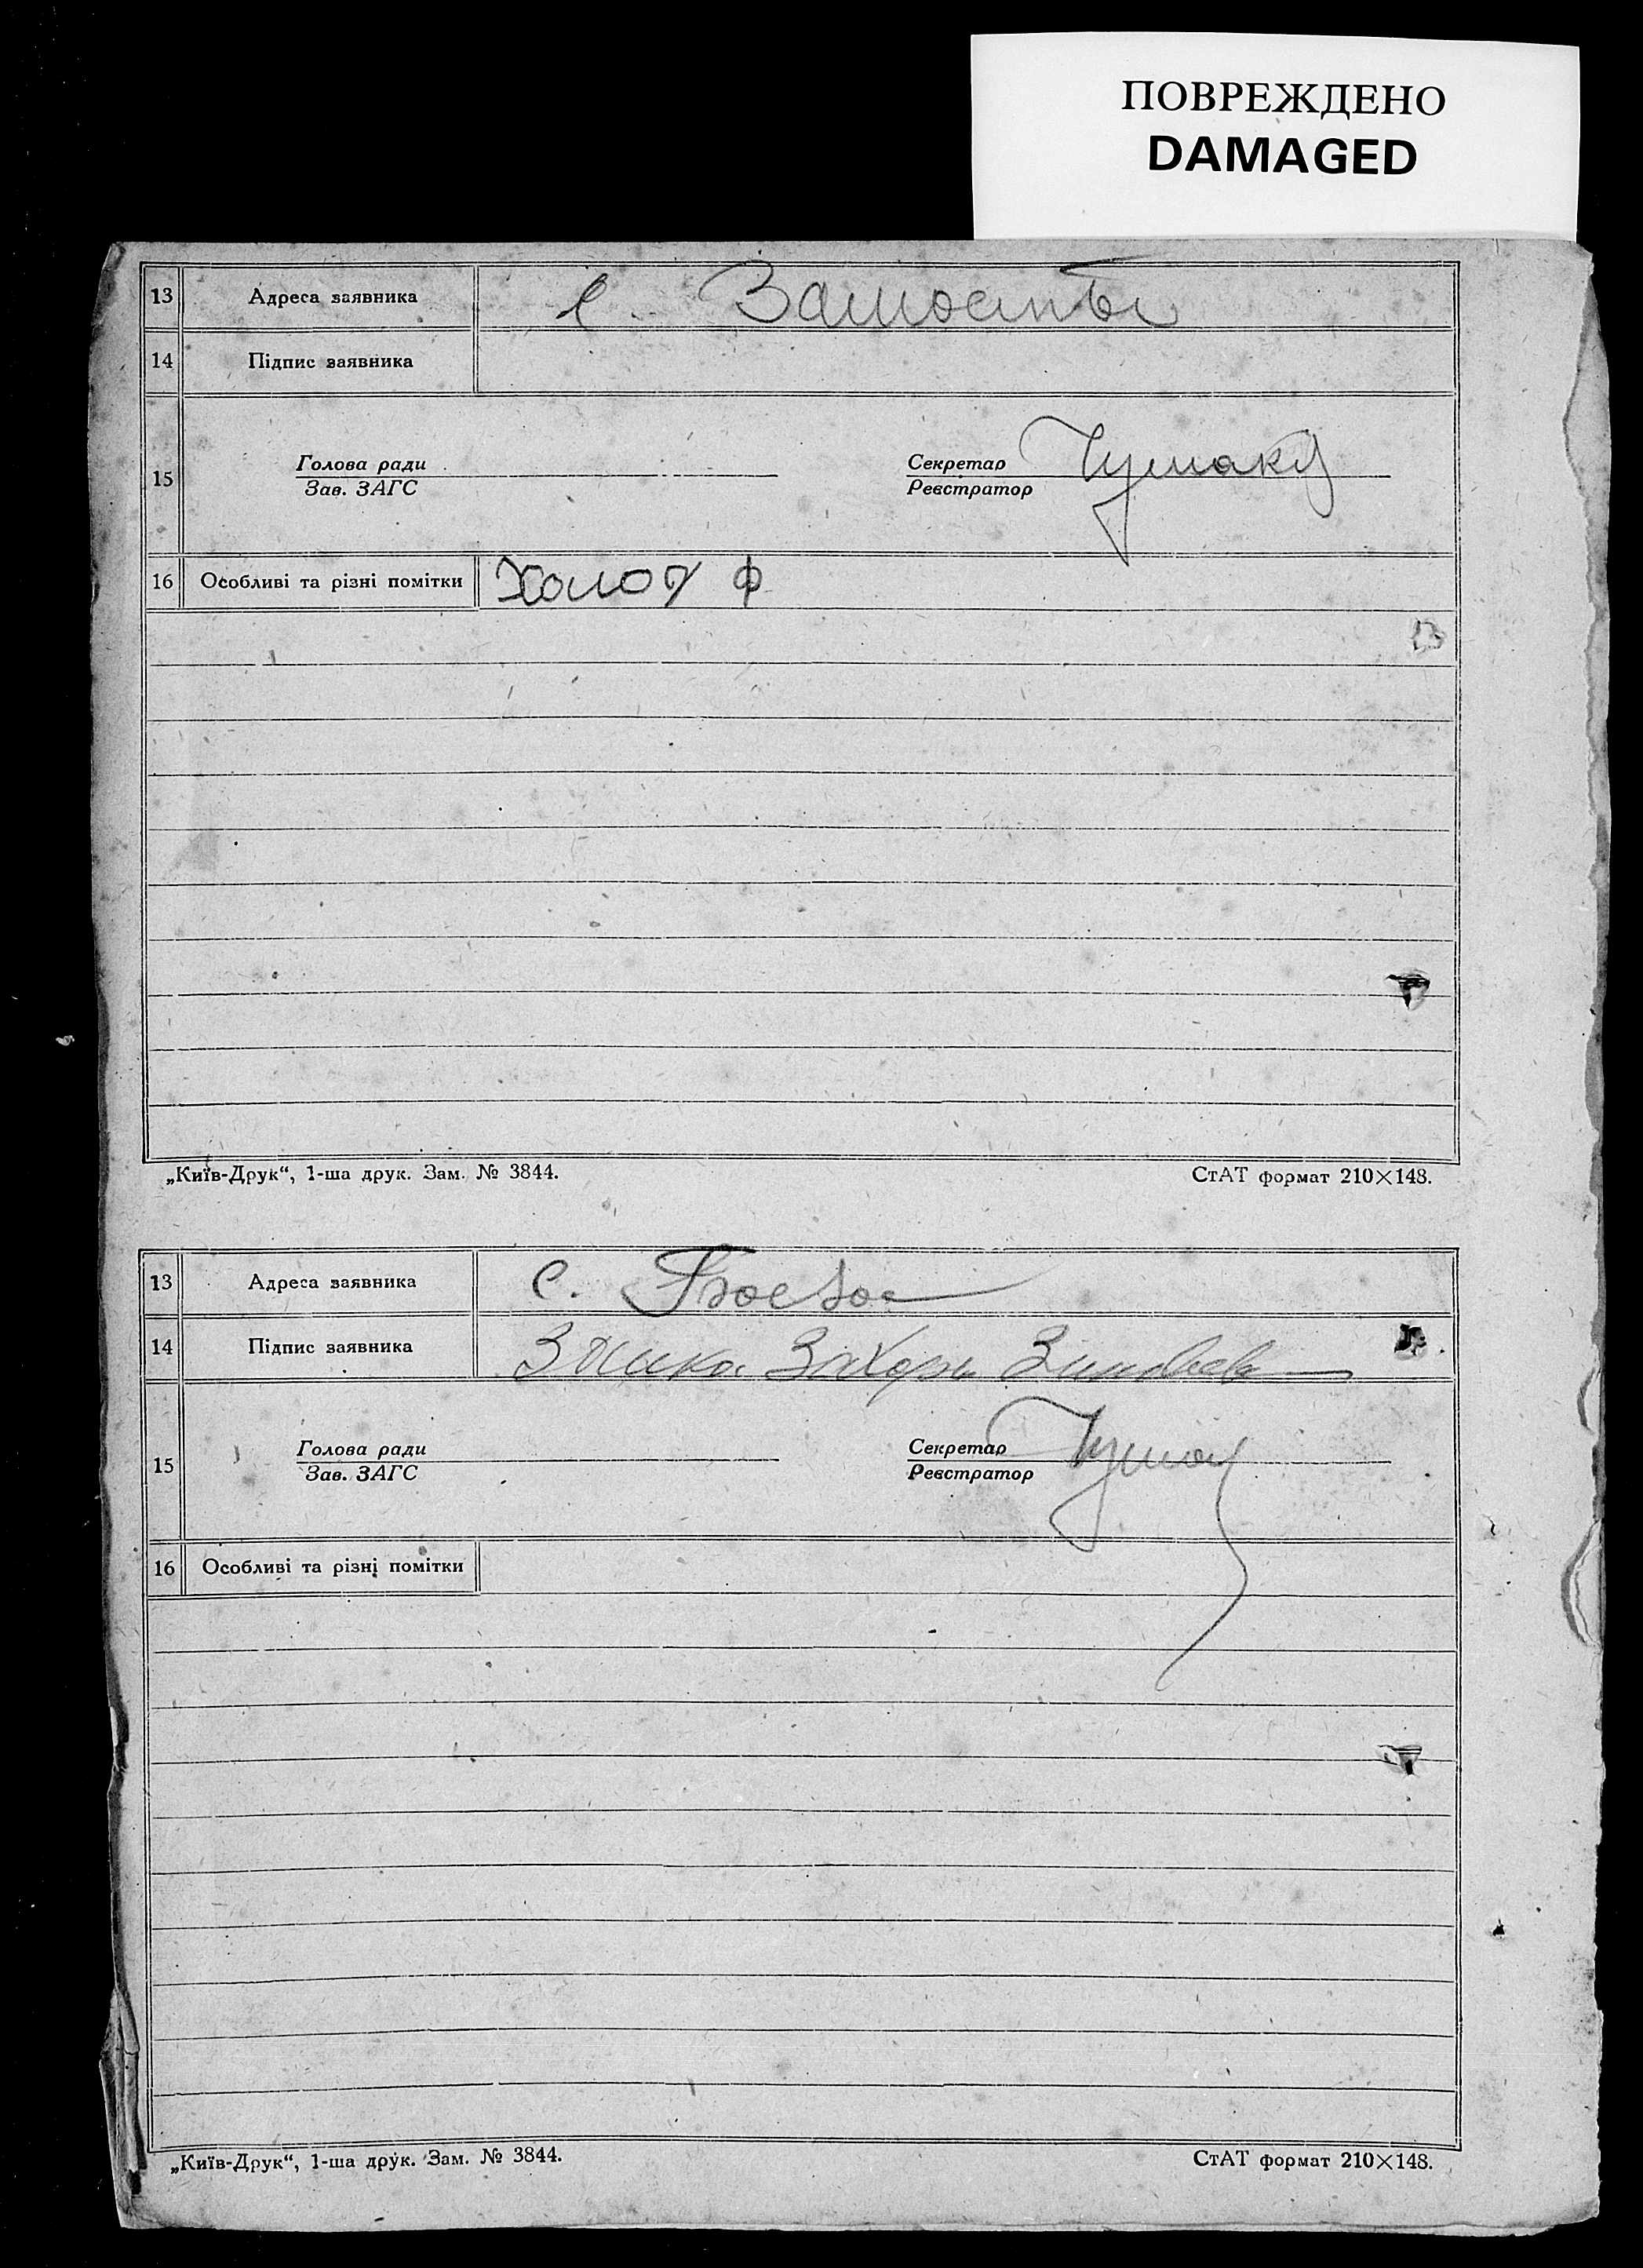 ПОВРЕЖДЕНО
DAMAGED
13 Адреса заявника с. Замостьи
14 Підпис заявника
15 Голова ради Секретар
Зав. ЗАГС Реєстратор
16 Особливі та різні помітки Холод Ф
„Київ-Друк“, 1-ша друк. Зам. № 3844. СтАТ формат 210×148.
13 Адреса заявника с.
14 Підпис заявника
15 Голова ради Секретар
Зав. ЗАГС Реєстратор
16 Особливі та різні помітки
„Київ-Друк“, 1-ша друк. Зам. № 3844. СтАТ формат 210×148.